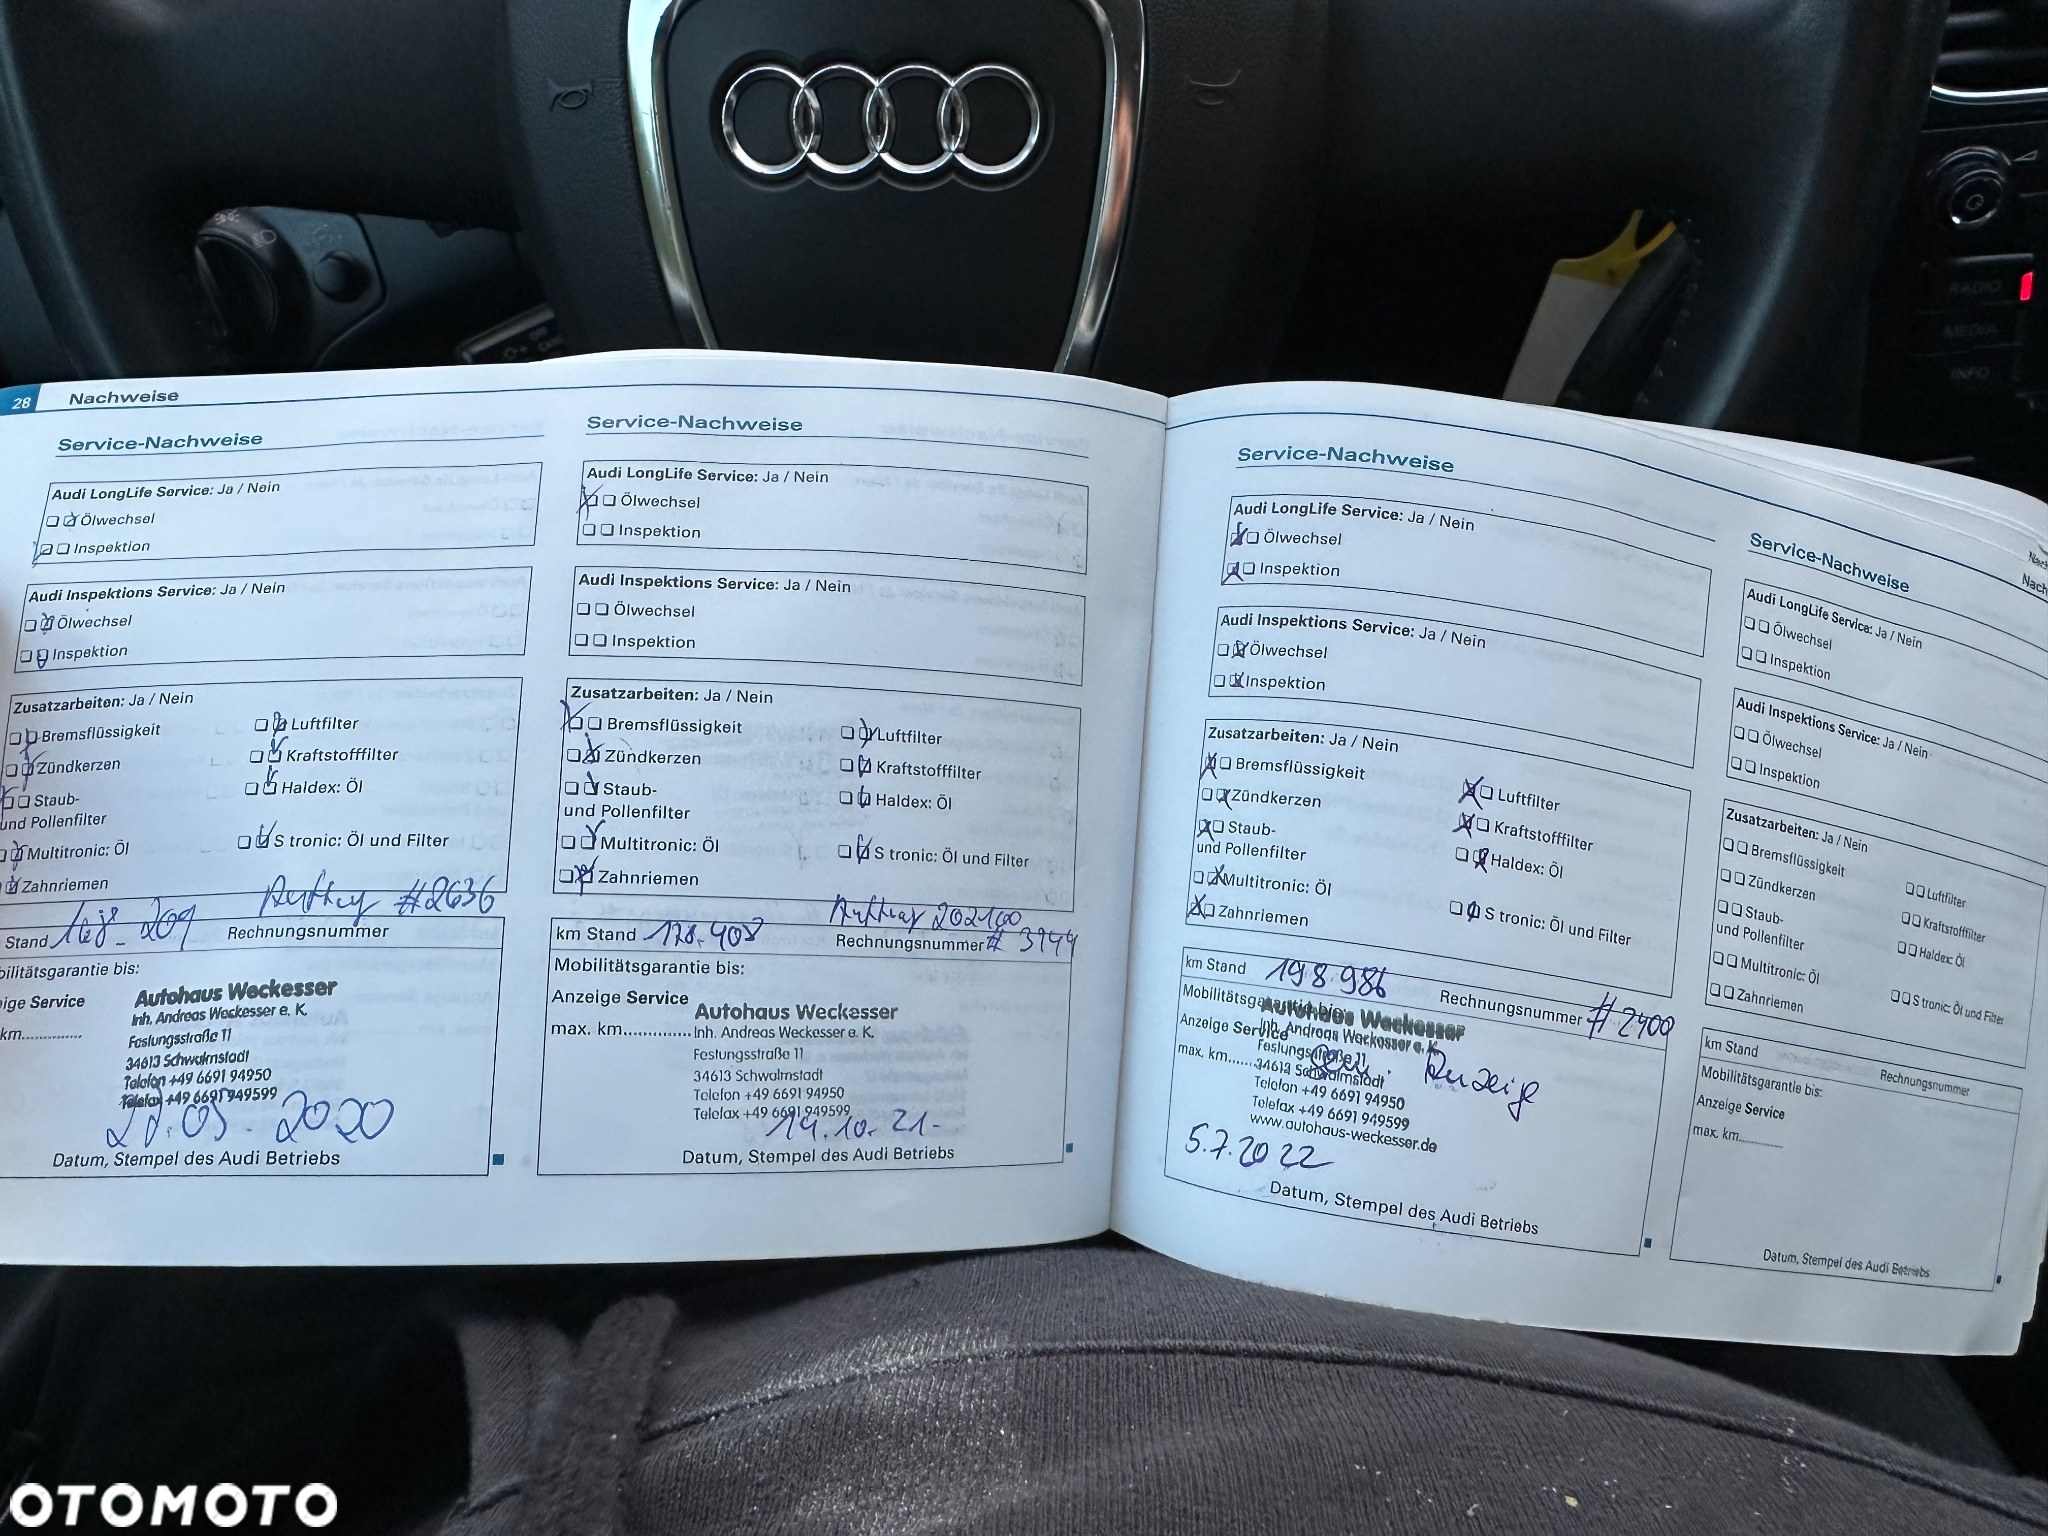 28 Nachweise
Service-Nachweise
Audi LongLife Service: Ja / Nein
Ölwechsel
Inspektion
Audi Inspektions Service: Ja / Nein
Ölwechsel
Inspektion
Zusatzarbeiten: Ja / Nein
Bremsflüssigkeit
Luftfilter
Zündkerzen
Kraftstofffilter
Staub-
und Pollenfilter
Haldex: Öl
Multitronic: Öl
S tronic: Öl und Filter
Zahnriemen
#2636
Stand
Rechnungsnummer
Service
km.
Autohaus Weckesser
Inh. Andreas Weckesser e. K.
Festungsstraße 11
34613 Schwalmstadt
Telefon +49 6691 94950
Telefax +49 6691 949599
2020
Datum, Stempel des Audi Betriebs
Service-Nachweise
Audi LongLife Service: Ja / Nein
Ölwechsel
Inspektion
Audi Inspektions Service: Ja / Nein
Ölwechsel
Inspektion
Zusatzarbeiten: Ja / Nein
Bremsflüssigkeit
Luftfilter
Zündkerzen
Kraftstofffilter
Staub-
und Pollenfilter
Haldex: Öl
Multitronic: Öl
S tronic: Öl und Filter
Zahnriemen
km Stand 178.408
Rechnungsnummer # 3944
Mobilitätsgarantie bis:
Anzeige Service
max. km
Autohaus Weckesser
Inh. Andreas Weckesser e. K.
Festungsstraße 11
34613 Schwalmstadt
Telefon +49 6691 94950
Telefax +49 6691 949599
14.10.21.
Datum, Stempel des Audi Betriebs
Service-Nachweise
Audi LongLife Service: Ja / Nein
Ölwechsel
Inspektion
Audi Inspektions Service: Ja / Nein
Ölwechsel
Inspektion
Zusatzarbeiten: Ja / Nein
Bremsflüssigkeit
Luftfilter
Zündkerzen
Kraftstofffilter
Staub-
und Pollenfilter
Haldex: Öl
Multitronic: Öl
S tronic: Öl und Filter
Zahnriemen
km Stand 198986
Rechnungsnummer #2400
Anzeige Service
max. km
Autohaus Weckesser
Inh. Andreas Weckesser e. K.
Festungsstraße 11
34613 Schwalmstadt
Anzeige
Telefon +49 6691 94950
Telefax +49 6691 949599
www.autohaus-weckesser.de
5.7.2022
Datum, Stempel des Audi Betriebs
Service-Nachweise
Audi LongLife Service: Ja / Nein
Ölwechsel
Inspektion
Audi Inspektions Service: Ja / Nein
Ölwechsel
Inspektion
Zusatzarbeiten: Ja / Nein
Bremsflüssigkeit
Luftfilter
Zündkerzen
Kraftstofffilter
Staub-
und Pollenfilter
Haldex: Öl
Multitronic: Öl
S tronic: Öl und Filter
Zahnriemen
km Stand
Rechnungsnummer
Mobilitätsgarantie bis:
Anzeige Service
max. km
Datum, Stempel des Audi Betriebs
RADIO
MEDIA
INFO
OTOMOTO